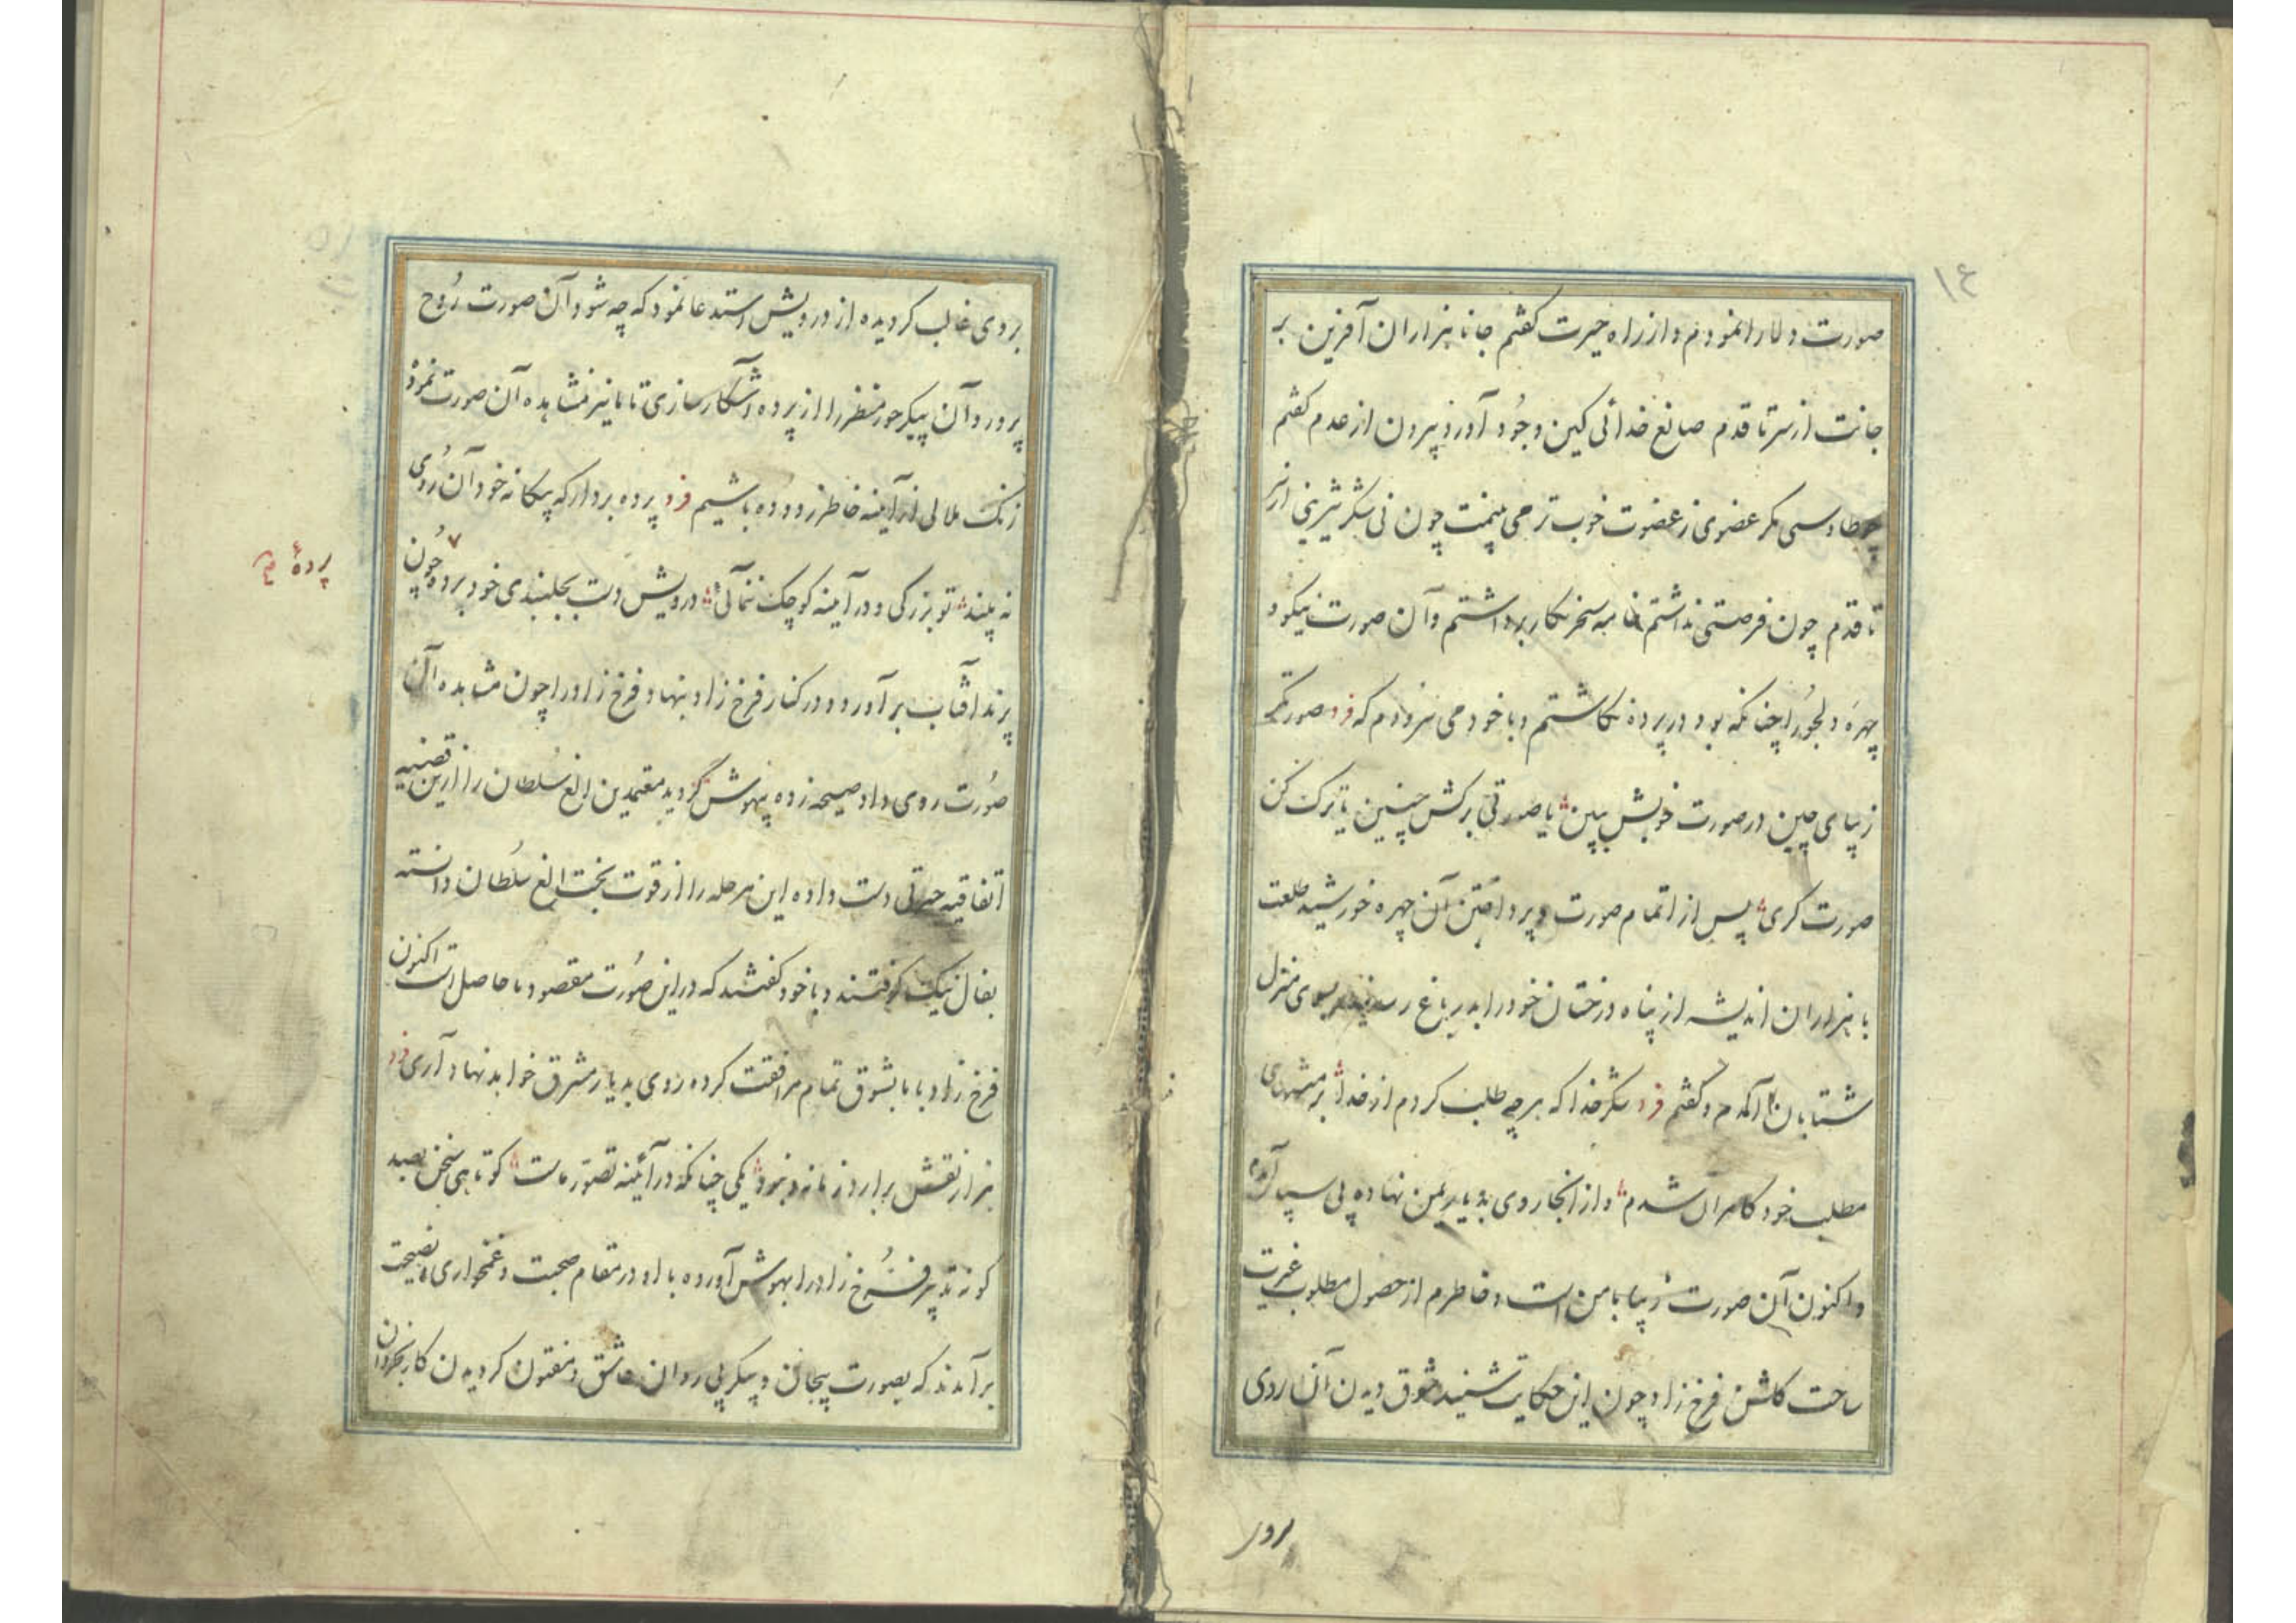 ۱۴
صورت دلارا نمودم و از راه حیرت گفتم جانا هزاران آفرین بر
جانت از سر تا قدم صانع خدائی کین وجود آورد بیرون از عدم گفتم
چو طاوسی مکر عضوی ز عضوت خوب تر می بینمت چون نی شکر شیرینی از سر
تا قدم چون فرصتی نداشتم خامه سحر نکار برداشتم و آن صورت نیکو و
چهره دلجو را چنانکه بود در پرده نکاشتم و با خود می سرودم که فرد صورتگر
زیبای چین در صورت خوبش ببین یا صورتی برکش چنین یا ترک کن
صورت کری پس از اتمام صورت و پرداختن آن چهره خورشید طلعت
با هزاران اندیشه از پناه درختان خود را بدر باغ رسانیده بسوی منزل
شتابان آمدم و گفتم فرد شکر خدا که هر چه طلب کردم از خدا بر منتهای
مطلب خود کامران شدم و از آنجا روی بدیار یمن نهاده پی سپار آمدم
و اکنون آن صورت زیبا با من است و خاطرم از حصول مطلوب غیرت
ساحت کلشن فرخ زاد چون این حکایت شنید شوق دیدن آن روی
بروی
بروی غالب کردیده از درویش استدعا نمود که چه شود آن صورت روح
پرور و آن پیکر حور منظر را از پرده آشکار سازی تا ما نیز بمشاهده آن صورت نمود
زنک ملالی از آینه خاطر زدوده باشیم فرد پرده بردار که بیکانه خود آن روی
نه بیند تو بزرکی و در آینه کوچک ننمائی درویش دست بجلبندی خود برده چون
پرده
پرند آفتاب بر آورد و در کنار فرخ زاد بنهاد فرخ زاد را چون مشاهده آن
صورت روی داد صیحه زده بیهوش گردید معتمدین الغ سلطان را ازین قضیه
اتفاقیه حیرتی دست داده این مرحله را از قوت بخت الغ سلطان دانسته
بفال نیک کوفتند و با خود گفتند که در این صورت مقصود ما حاصل است اکنون
فرخ زاد با ما بشوق تمام مرافقت کرده روی بدیار مشرق خواهد نهاد آری فرد
هزار نقش برارد زمانه و نبود یکی چنانکه در آئینه تصور ماست کوتاهی سخن بصد
کونه تدبیر فرخ زاد را بهوش آورده با او در مقام صحبت و غمخواری و نصیحت
برآمدند که بصورت بیجان و پیکر بی روان عاشق و مفتون کردیدن کار بخردان